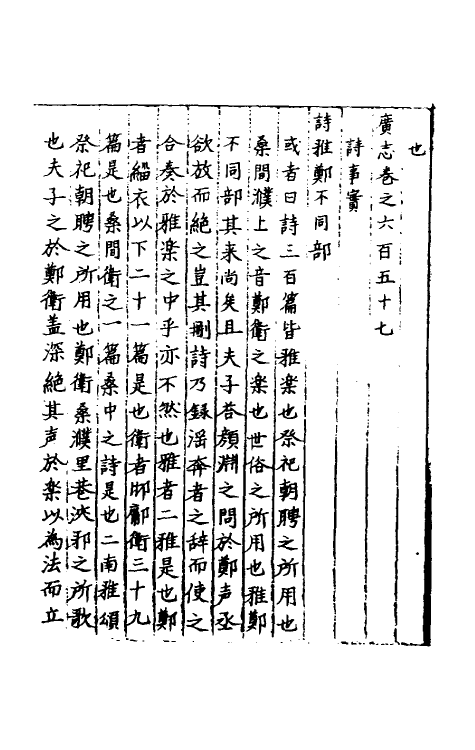 也
廣志卷之六百五十七
詩事實
詩雅鄭不同部
或者曰詩三百篇皆雅楽也祭祀朝聘之所用也
桑間濮上之音鄭衛之楽也世俗之所用也雅鄭
不同部其来尚矣且夫子荅顔淵之問於鄭声亟
欲放而絶之豈其刪詩乃録滛奔者之辞而使之
合奏於雅楽之中乎亦不然也雅者二雅是也鄭
者緇衣以下二十一篇是也衛者邶鄘衛三十九
篇是也桑間衛之一篇桑中之詩是也二南雅頌
祭祀朝聘之所用也鄭衛桑濮里巷浹邪之所歌
也夫子之於鄭衛盖深絶其声於楽以為法而立